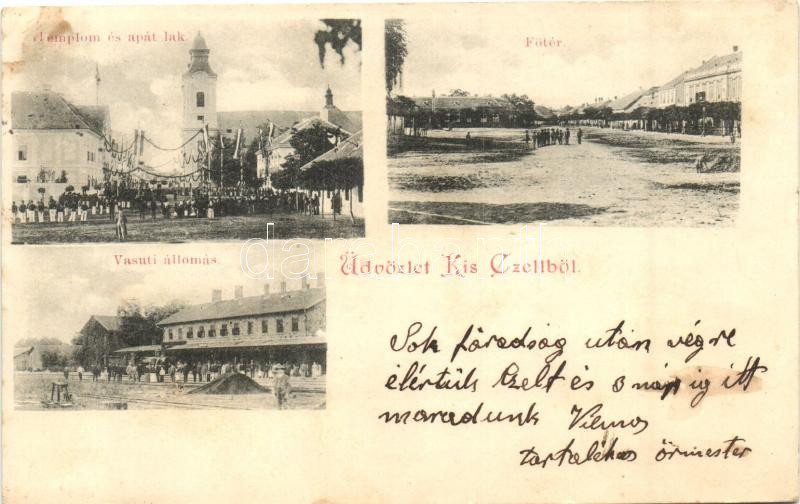 Templom és apát lak.
Főtér.
Vasuti állomás.
Üdvözlet Kis Czellből.
Sok fáradság után végre
elértük Czelt és 3 napig itt
maradunk Vilmos
tartalékos őrmester